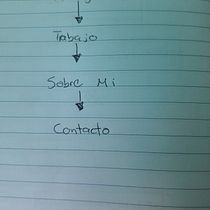 Trabajo
Sobre Mi
Contacto